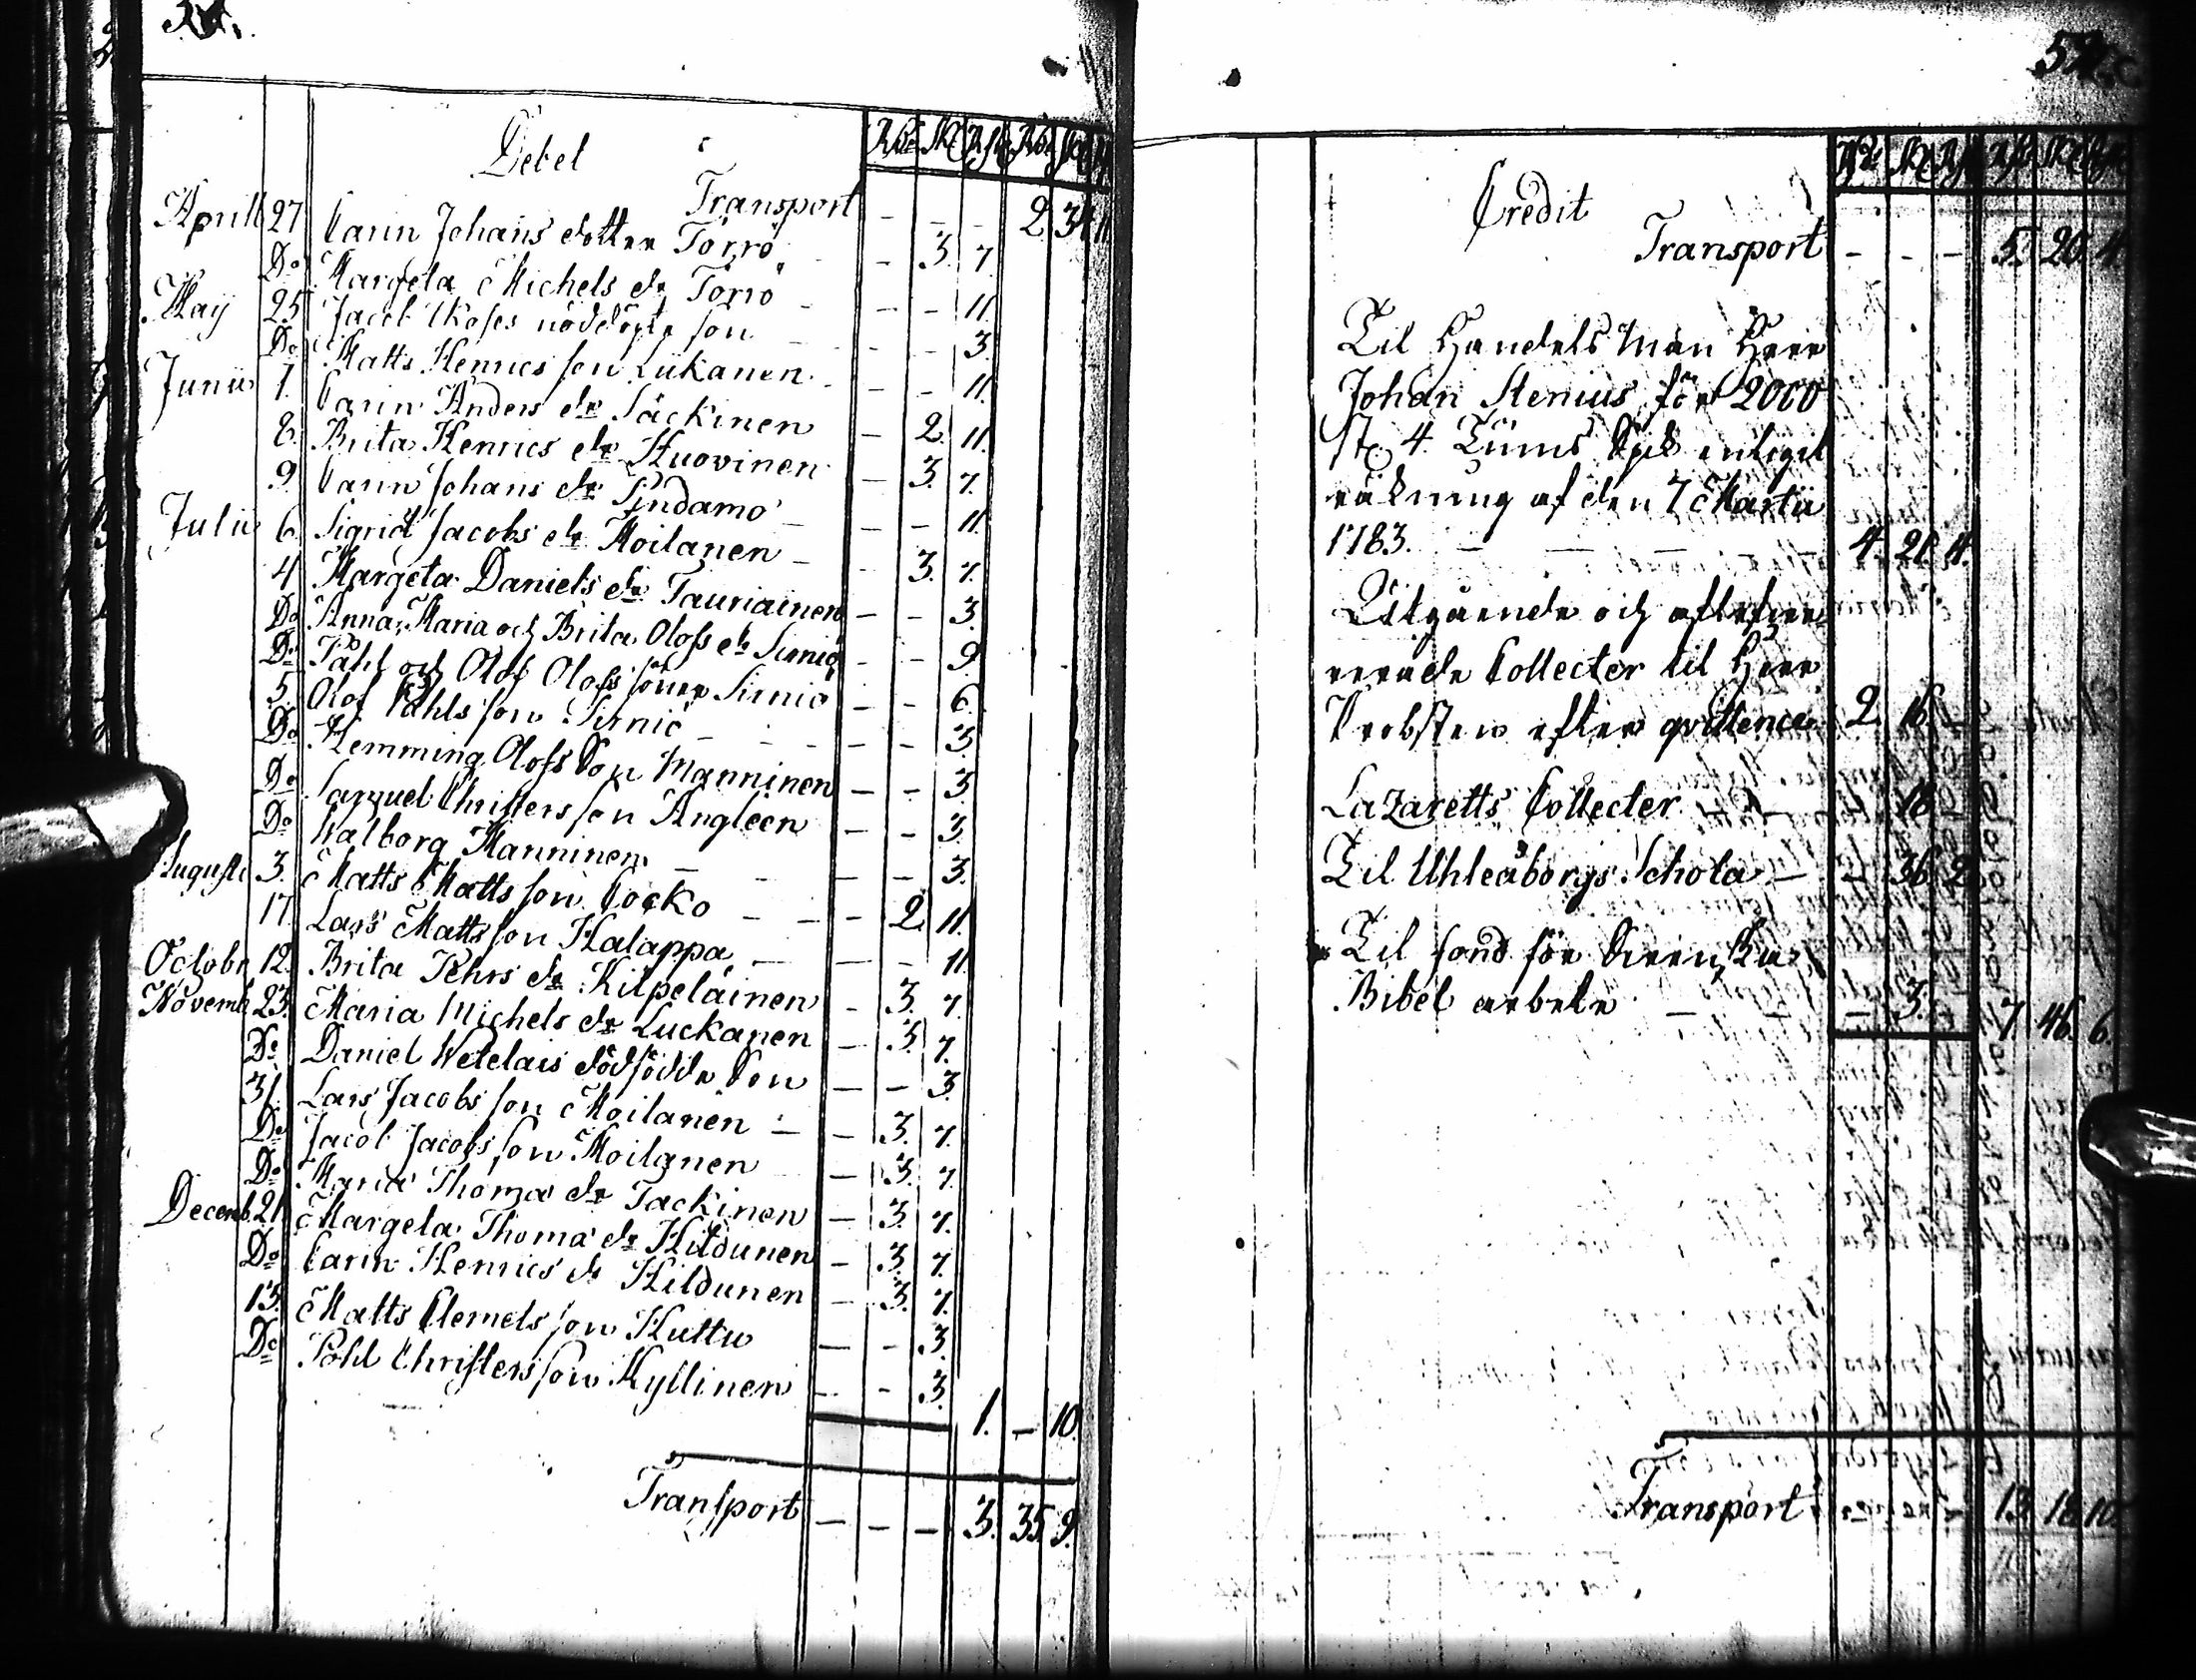 Debet
Rdr Sk Rst Rdr Sk
Transport - - - 2. 34. 11
Aprill 27 Carin Johans dotter Törrö - 3. 7.
Do Margeta Michels dr Törrö - - 11.
May 25 Jacob nöddöpte son - - 3
Do Matts Henrics son Lukanen - - 11.
Junii 1. Carin Anders dr Säckinen - 2. 11.
8. Brita Henrics dr Huovinen - 3. 7.
9. Carin Johans dr Pindamo - - 11.
Julii 6. Sigrid Jacobs dr Moilanen - 3. 7.
4 Margeta Daniels dr Tauriainen - - 3.
Do Anna, Maria och Brita Olofs dr Sirniö - - 9
Do Påhl och Olof Olofs söner Sirniö - - 6.
5. Olof Påhls son Sirniö - - 3.
Do Hemming Olofs Son Manninen - - 3
Do Samuel Christers son Angleen - - 3.
Do Walborg Manninen - - 3.
Augusti 3. Matts Matts son Cocko - 2. 11.
17. Lars Matts son Halappa - - 11
Octobr 12. Brita Pehrs dr Kilpeläinen - 3. 7.
Novemb. 23. Maria Michels dr Luckanen - 3. 7.
Do Daniel Wetelais dödfödde Son - - 3.
31. Lars Jacobs son Moilanen - 3. 7.
Do Jacob Jacobs son Moilanen - 3. 7.
Do Maria Thoma dr Tackinen - 3. 7.
Decemb. 21. Margeta Thoma dr Hildunen - 3. 7.
Do Carin Henrics dr Hildunen - 3. 7.
13. Matts Clemets son Huttu - - 3.
Do Påhl Christers son Kyllinen - - 3.
1. - 10.
Transport - - - 3. 35. 9.
52
Credit
Transport - - - 5. 20. 4
Til Handels Man Herr
Johan Stenius för 2000
St. 4 Tums Spik enligit
räkning af den 7 Martii
1783. - - - 4. 21. 4.
Utgående och
Collecter til Herr
Probsten efter qvittence 2. 16. -
Lazaretts Collecter - 18
Til Uhleåborgs Schola - - 36. 2
Til fond för Svenska
Bibel arbete - - 3. 7. 46. 6.
Transport - - - 13. 18. 10